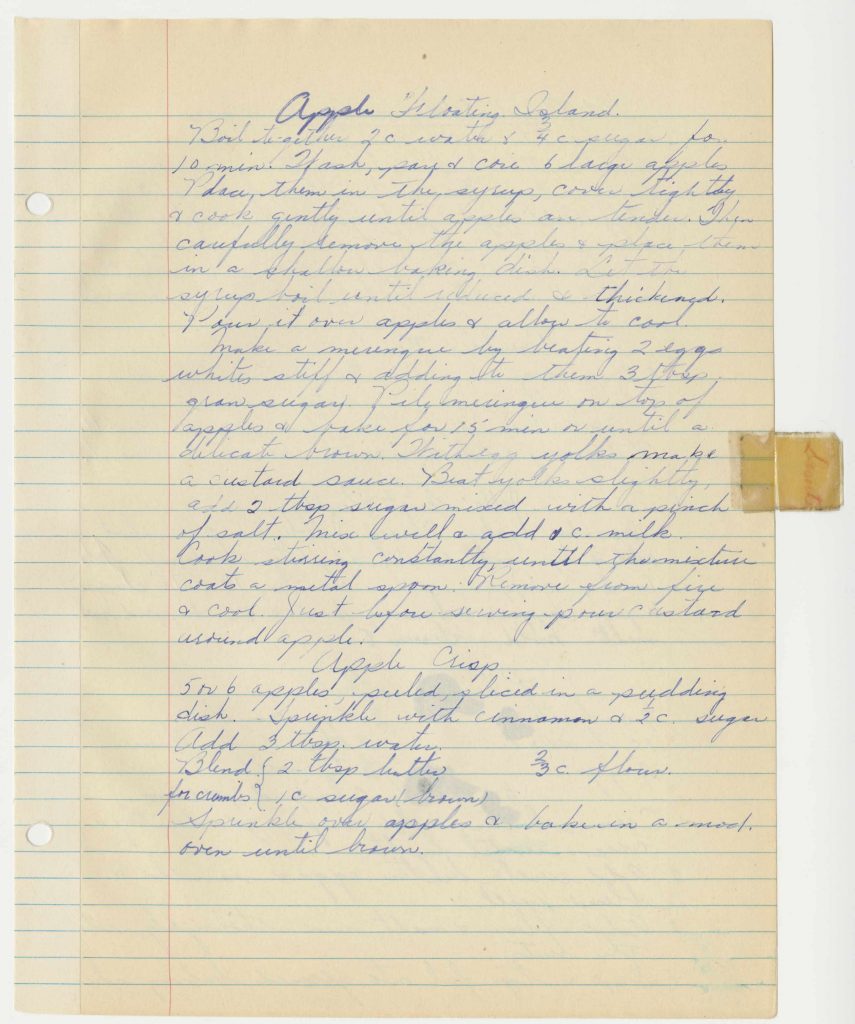 Apple Floating Island.
Boil together 2 c water & 3/4 c sugar for
10 min. Wash, pare & core 6 large apples
Place, them in the syrup, cover tightly
& cook gently until apples are tender. Then
carefully remove the apples & place them
in a shallow baking dish. Let the
syrup boil until reduced & thickened.
Pour it over apples & allow to cool.
Make a meringue by beating 2 eggs
whites stiff & adding to them 3 tbsp.
gran sugar. Pile meringue on top of
apples & bake for 15 min or until a
delicate brown. With egg yolks make
a custard sauce. Beat yolks slightly,
add 2 tbsp sugar mixed with a pinch
of salt. Mix well & add 1 c. milk.
Cook stirring constantly, until the mixture
coats a metal spoon. Remove from fire
& cool. Just before serving pour custard
around apple.
Apple Crisp.
5 or 6 apples, peeled, sliced in a pudding
dish. Sprinkle with cinnamon & 1/2 c. sugar
Add 3 tbsp. water.
Blend { 2 tbsp butter 2/3 c. flour.
for crumbs { 1 c sugar (brown)
Sprinkle over apples & bake in a mod.
oven until brown.